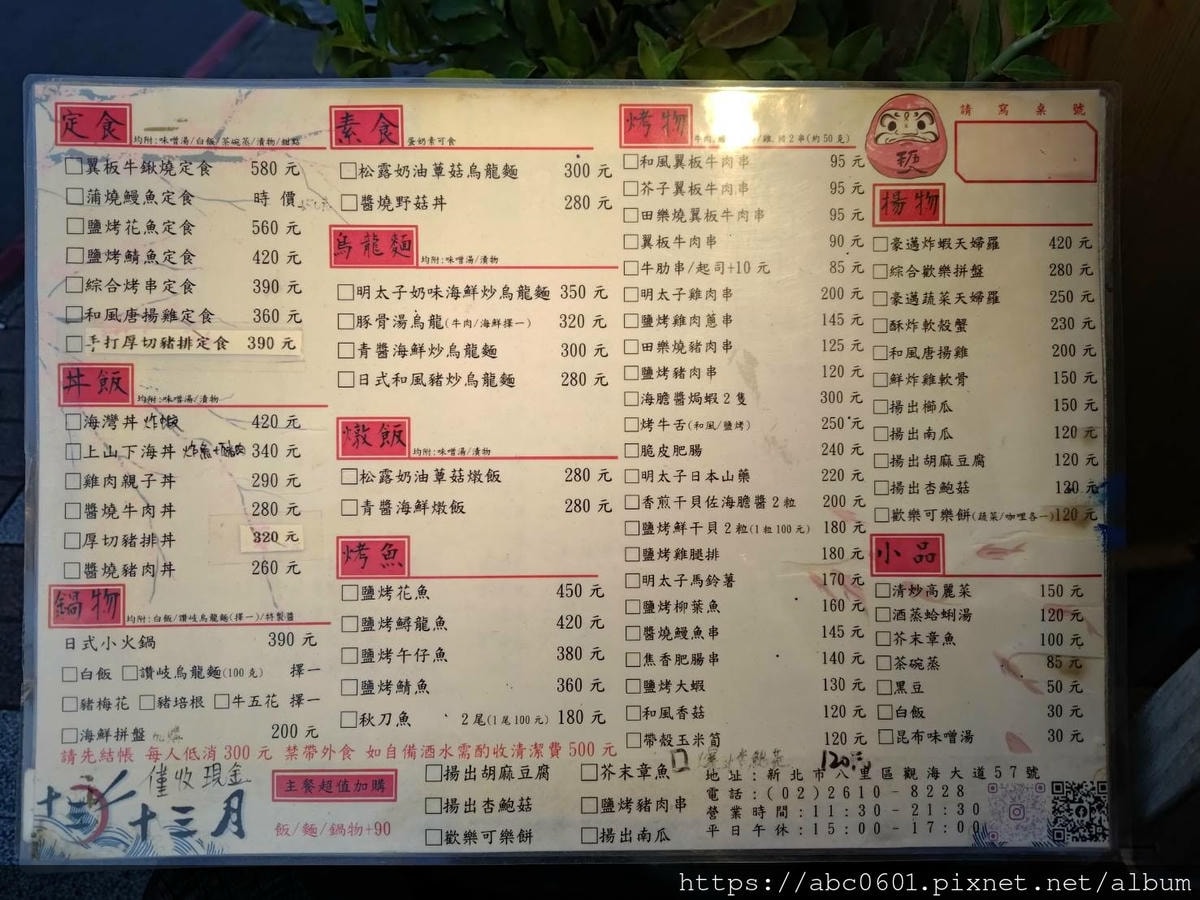 定食 均附:味噌湯/白飯/茶碗蒸/漬物/甜點
翼板牛鍬燒定食 580元
蒲燒鰻魚定食 時價
鹽烤花魚定食 560元
鹽烤鯖魚定食 420元
綜合烤串定食 390元
和風唐揚雞定食 360元
手打厚切豬排定食 390元
丼飯 均附:味噌湯/漬物
海灣丼 420元
上山下海丼 340元
雞肉親子丼 290元
醬燒牛肉丼 280元
厚切豬排丼 320元
醬燒豬肉丼 260元
鍋物 均附:白飯/讚岐烏龍麵(擇一)/特製醬
日式小火鍋 390元
白飯 讚岐烏龍麵(100克) 擇一
豬梅花 豬培根 牛五花 擇一
海鮮拼盤 200元
素食 蛋奶素可食
松露奶油蕈菇烏龍麵 300元
醬燒野菇丼 280元
烏龍麵 均附:味噌湯/漬物
明太子奶味海鮮炒烏龍麵 350元
豚骨湯烏龍(牛肉/海鮮擇一) 320元
青醬海鮮炒烏龍麵 300元
日式和風豬炒烏龍麵 280元
燉飯 均附:味噌湯/漬物
松露奶油蕈菇燉飯 280元
青醬海鮮燉飯 280元
烤魚
鹽烤花魚 450元
鹽烤鱘龍魚 420元
鹽烤午仔魚 380元
鹽烤鯖魚 360元
秋刀魚 2尾(1尾100元) 180元
烤物 2串(約50克)
和風翼板牛肉串 95元
芥子翼板牛肉串 95元
田樂燒翼板牛肉串 95元
翼板牛肉串 90元
牛肋串/起司+10元 85元
明太子雞肉串 200元
鹽烤雞肉蔥串 145元
田樂燒豬肉串 125元
鹽烤豬肉串 120元
海膽醬焗蝦2隻 300元
烤牛舌(和風/鹽烤) 250元
脆皮肥腸 240元
明太子日本山藥 220元
香煎干貝佐海膽醬2粒 200元
鹽烤鮮干貝2粒(1粒100元) 180元
鹽烤雞腿排 180元
明太子馬鈴薯 170元
鹽烤柳葉魚 160元
醬燒鰻魚串 145元
焦香肥腸串 140元
鹽烤大蝦 130元
和風香菇 120元
帶殼玉米筍 120元
120元
請寫桌號
揚物
豪邁炸蝦天婦羅 420元
綜合歡樂拼盤 280元
豪邁蔬菜天婦羅 250元
酥炸軟殼蟹 230元
和風唐揚雞 200元
鮮炸雞軟骨 150元
揚出櫛瓜 150元
揚出南瓜 120元
揚出胡麻豆腐 120元
揚出杏鮑菇 120元
歡樂可樂餅(蔬菜/咖哩各一) 120元
小品
清炒高麗菜 150元
酒蒸蛤蜊湯 120元
芥末章魚 100元
茶碗蒸 85元
黑豆 50元
白飯 30元
昆布味噌湯 30元
請先結帳 每人低消300元 禁帶外食 如自備酒水需酌收清潔費500元
僅收現金
十三月
主餐超值加購
飯/麵/鍋物+90
揚出胡麻豆腐 芥末章魚
揚出杏鮑菇 鹽烤豬肉串
歡樂可樂餅 揚出南瓜
地址:新北市八里區觀海大道57號
電話:(02)2610-8228
營業時間:11:30-21:30
平日午休:15:00-17:00
https://abc0601.pixnet.net/album